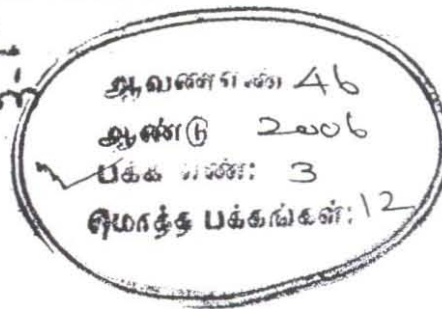 ஆவண எண் 46
ஆண்டு 2006
பக்க எண்: 3
மொத்த பக்கங்கள்: 12